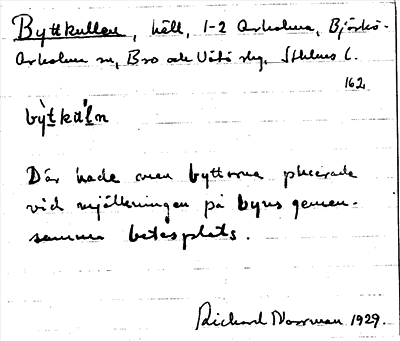 Byttkullen, häll, 1-2 Arholma, Björkö-
Arholma sn, Bro och Vätö slg, Sthlms l.
162
bỳt̲kä'l̲n
Där hade man byttorna placerade
vid mjölkningen på byns gemen-
samma betesplats.
Richard Norrman 1929.